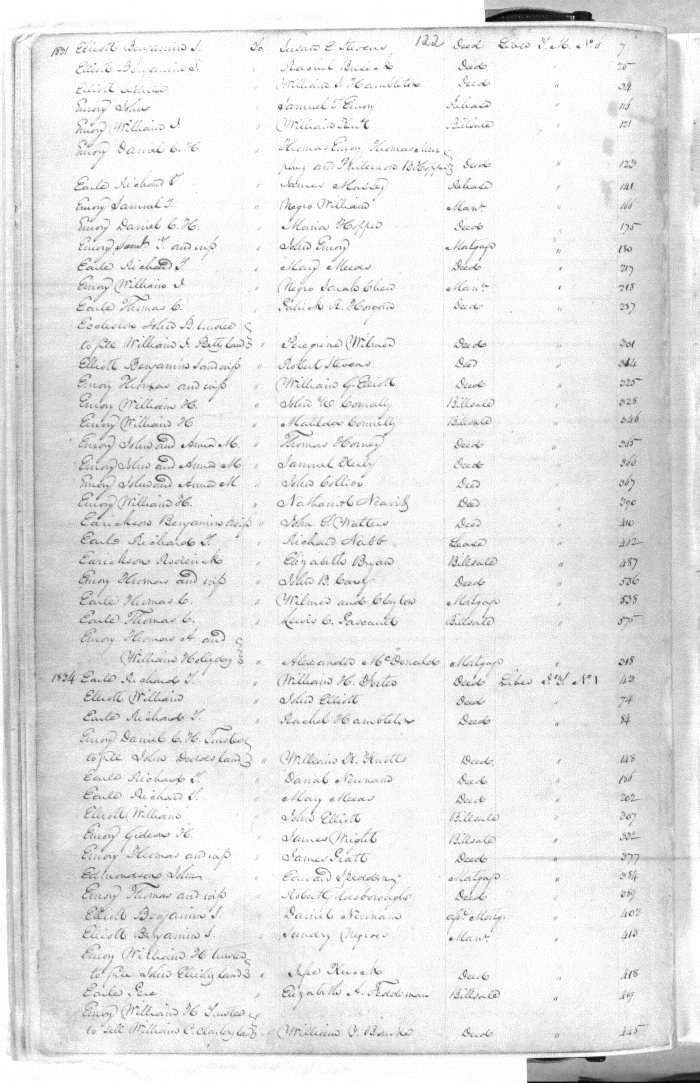 122
1831 Elliott Benjamin S. To Susan E Stevens Deed Liber T. M. No 1 7
Elliott Benjamin S " Rachel Deed " 25
Elliott " William J Hambleton Deed " 34
Emory John " Samuel T Emory Release " 116
Emory William J " William Billsale " 121
Emory Daniel C. H. " Thomas Emory Thomas
and B Hopper Deed " 123
Earle Richard T " James Massey Release " 141
Emory Samuel T. " Negro William Man. " 166
Emory Daniel C. H. " Maria Hopper Deed " 175
Emory Saml. T. and wife " John Emory Mortgage " 180
Earle Richard T. " Mary Meeds Deed " 217
Emory William J " Negro Sarah Chew Man. " 218
Earle Thomas C. " Patrick Deed " 287
Eccleston John B. trustee
to sell William J. land " Peregrine Wilmer Deed " 301
Elliott Benjamin S and wife " Robert Stevens Deed " 314
Emory Thomas and wife " William G. Elliott Deed " 325
Emory William H. " John W Connelly Billsale " 328
Emory William H " Matilda Connelly Billsale " 346
Emory John and Anna M. " Thomas Horney Deed " 365
Emory John and Anna M " Samuel Deed " 366
Emory John and Anna M " John Collier Deed " 367
Emory William H. " Nathaniel Deed " 390
Earickson Benjamin & wife " John G. Watters Deed " 410
Earle Richard T. " Richard Nabb Lease " 412
Earickson Roderick " Elizabeth Bryan Billsale " 487
Emory Thomas and wife " John B. Carey Deed " 536
Earle Thomas C. " Wilmer and Clayton Mortgage " 538
Earle Thomas C. " Lewis C. Pascault Billsale " 575
Emory Thomas A. and
William " Alexander McDonald Mortgage " 318
1834 Earle Richard T. " William H. Deed Liber J. T. No 1 43
Elliott William " John Elliott Deed " 74
Earle Richard T. " Rachel Hambleton Deed " 84
Emory Daniel C. H. Trustee
to sell John land " William Deed " 148
Earle Richard T. " Daniel Newnam Deed " 186
Earle Richard T. " Mary Meeds Deed " 262
Elliott William " John Elliott Billsale " 307
Emory Gideon H. " James Wright Billsale " 332
Emory Thomas and wife " James Pratt Deed " 377
Edmondson John " Edward Mortgage " 384
Emory Thomas and wife " Robert Goldsborough Deed " 389
Elliott Benjamin S. " Daniel Newnam Mortg. " 402
Elliott Benjamin S. " Sundry Negroes Man. " 413
Emory William H trustee
to sell John land " Deed " 418
Earle " Elizabeth A. Feddeman Billsale " 419
Emory William H Trustee
to Sell William C. Clayton land " William J. Deed " 445